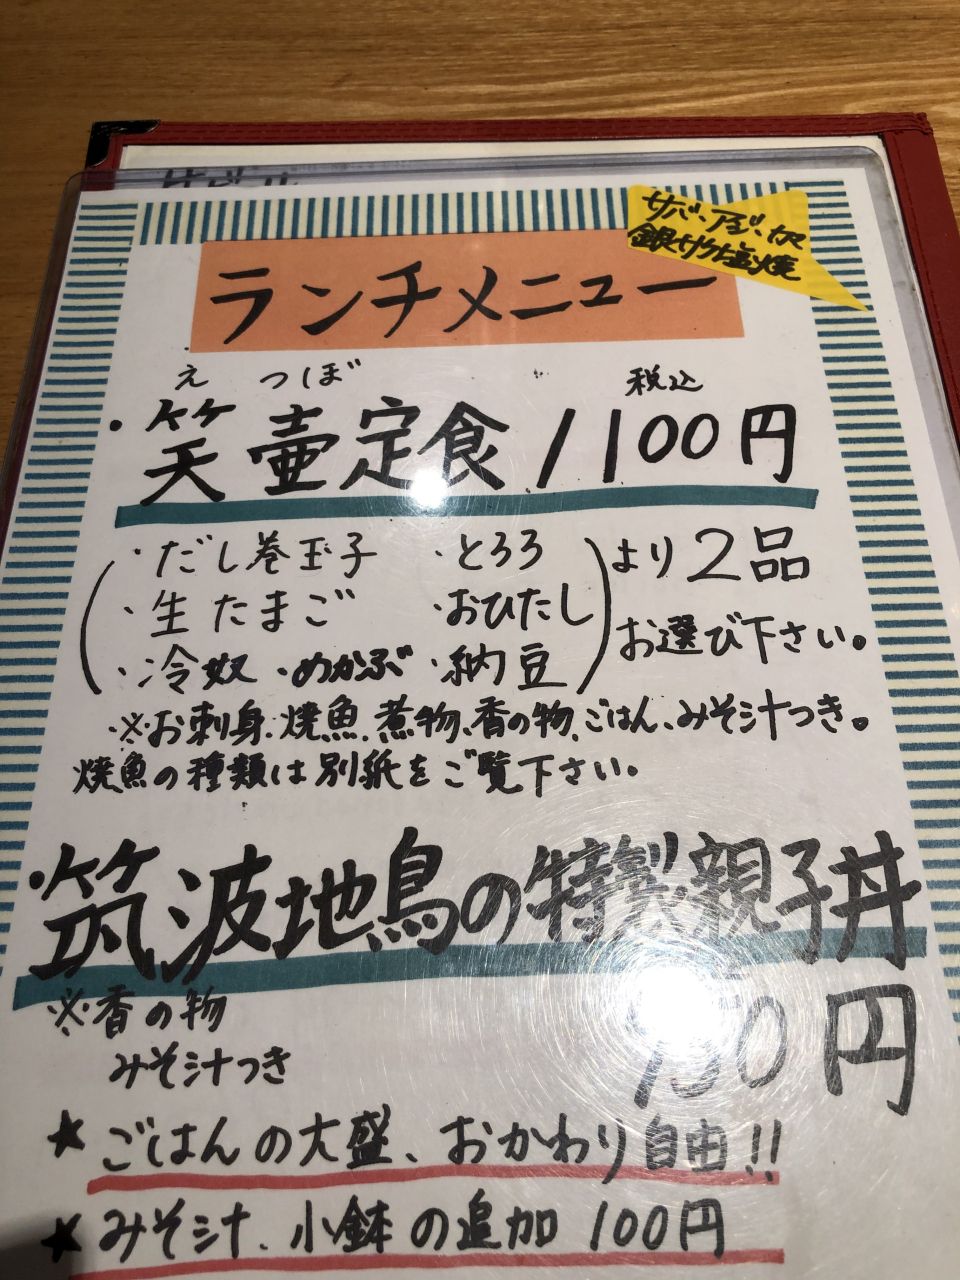 サバ、アジ、カマ
銀サケ塩焼
ランチメニュー
えつぼ
税込
・笑壷定食 1100円
・だし巻玉子 ・とろろ
・生たまご ・おひたし
・冷奴 ・めかぶ ・納豆
より2品
お選び下さい。
※お刺身、焼魚、煮物、香の物、ごはん、みそ汁つき。
焼魚の種類は別紙をご覧下さい。
・筑波地鳥の特製親子丼
円
※香の物
みそ汁つき
★ごはんの大盛、おかわり自由!!
★みそ汁、小鉢の追加 100円